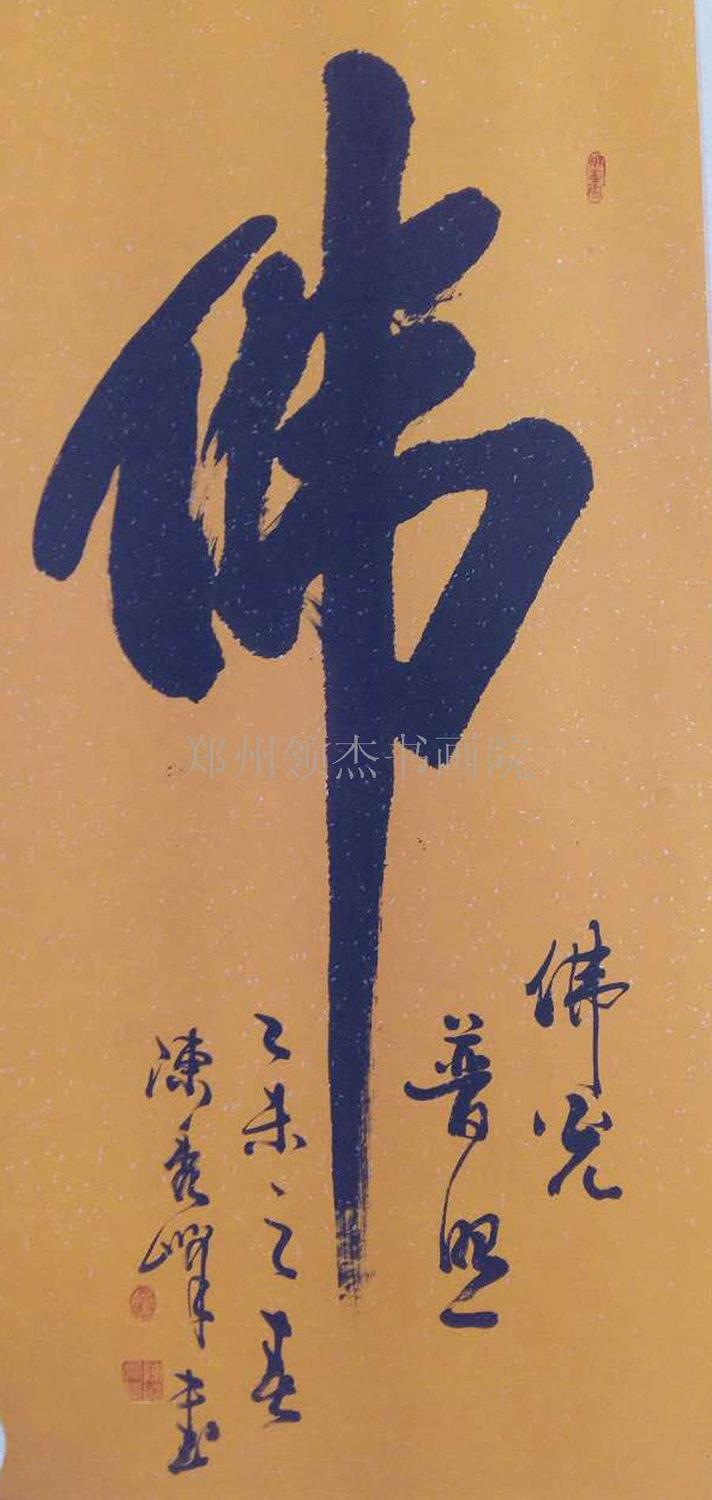 佛
佛光
普照
乙未之春
陈秀峰书
郑州领杰书画院